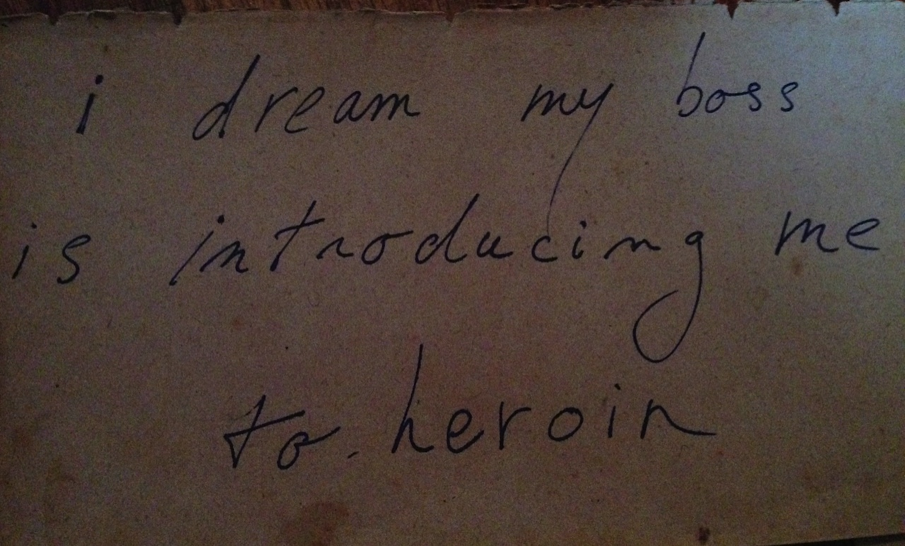 i dream my boss
is introducing me
to. heroin